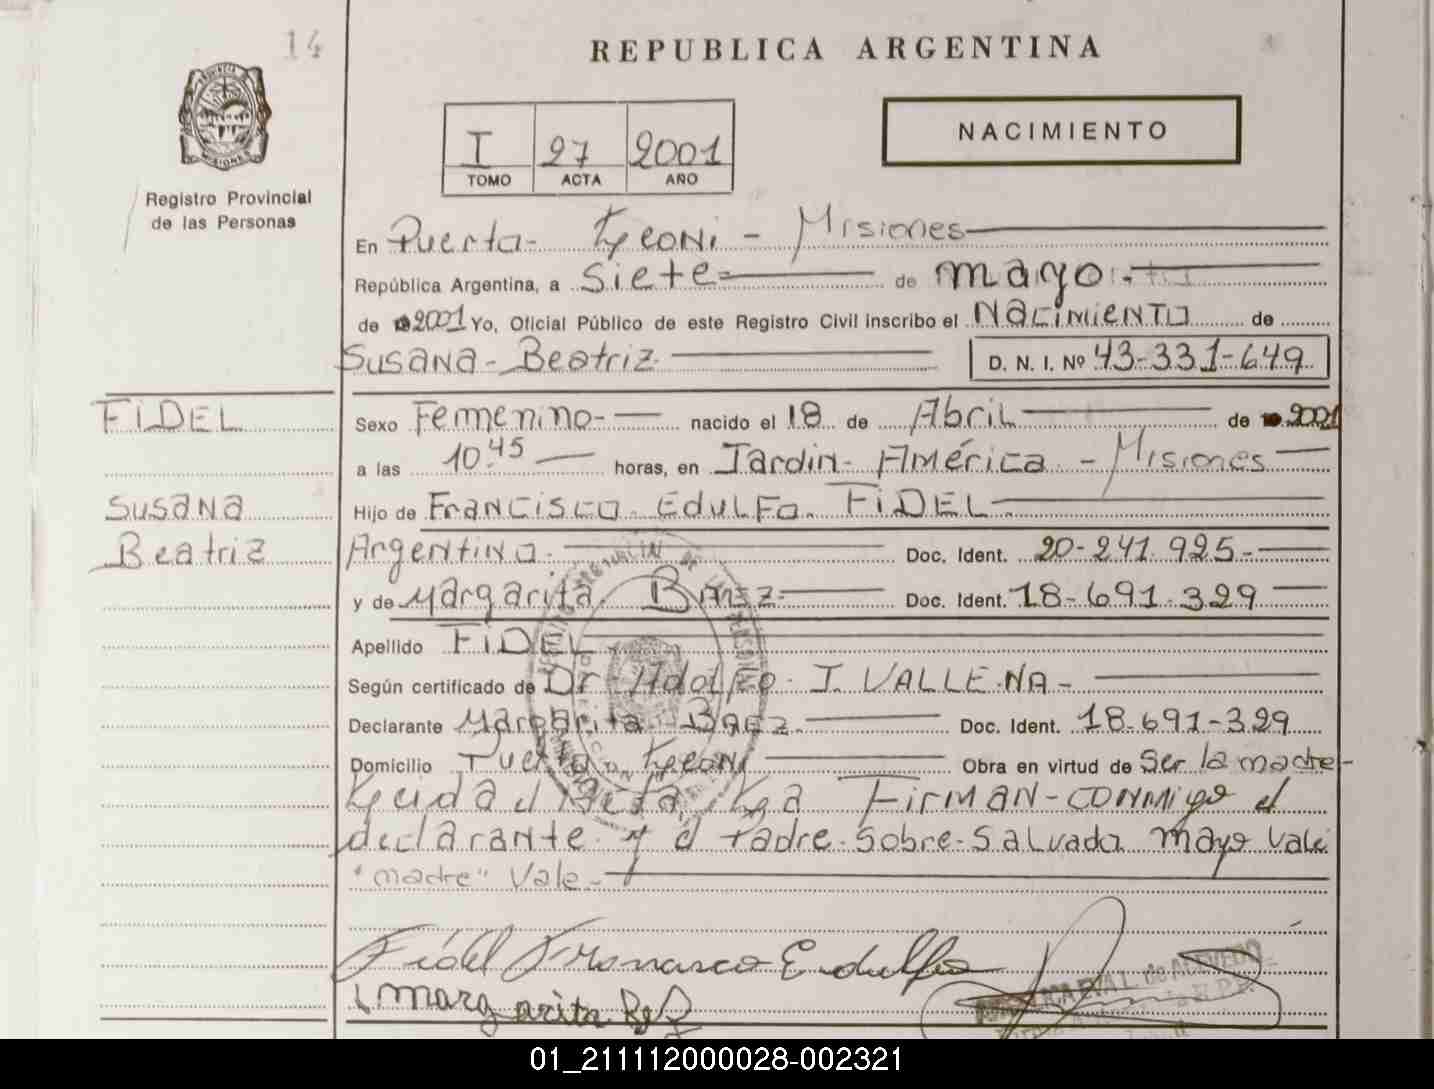 14
REPUBLICA ARGENTINA
NACIMIENTO
I 27 2001
TOMO ACTA AÑO
PROVINCIA DE MISIONES
Registro Provincial
de las Personas
En Puerto- Leoni - Misiones
República Argentina, a Siete de mayo.-
de 2001 Yo, Oficial Público de este Registro Civil inscribo el NACIMIENTO de
SUSANA - Beatriz. D. N. I. Nº 43-331-649
FIDEL
SUSANA
Beatriz
Sexo Femenino- nacido el 18 de Abril de 2001
a las 10:45 horas, en Jardin- América - Misiones
Hijo de FranCISCO. EdULFO. FIDEL.
Argentino. Doc. Ident. 20-241.925-
y de Margarita. BAEZ Doc. Ident. 18-691.329
Apellido FIDEL.
Según certificado de Dr Adolfo. I. VALLENA-
Declarante Margarita BAEZ. Doc. Ident. 18-691-329
Domicilio Puerto Leoni Obra en virtud de Ser la madre-
Leida el Acta La FirMAN-CONMigo el
declarante y el Padre. Sobre-Salvada mayo Vale
"madre" Vale-
Fidel Francisco Edulfo
Margarita
de ACEVEDO
01_211112000028-002321